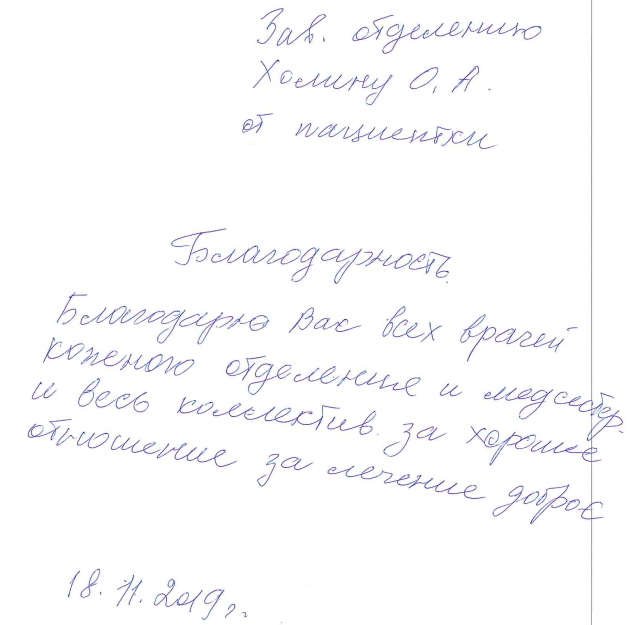 Зав. отделению
Холину О. А.
от пациентки
Благодарность.
Благодарю Вас всех врачей
коженого отделение и медсестер.
и весь коллектив. за хорошее
отношение за лечение доброе
18. 11. 2019 г.